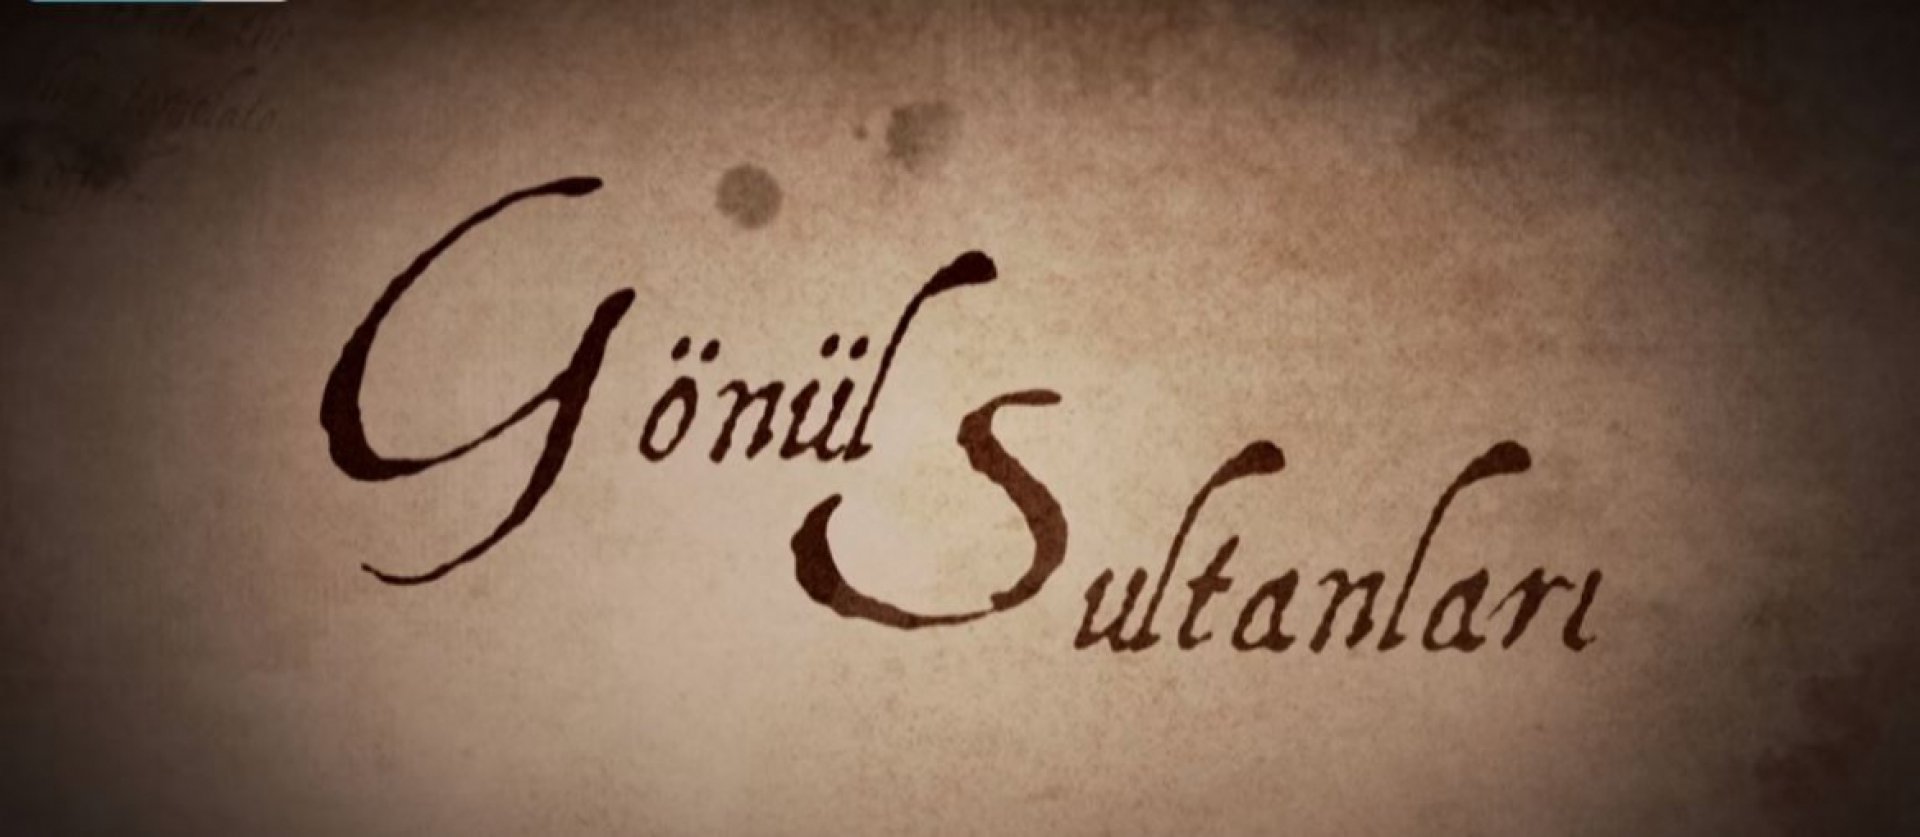 Gönül
Sultanları